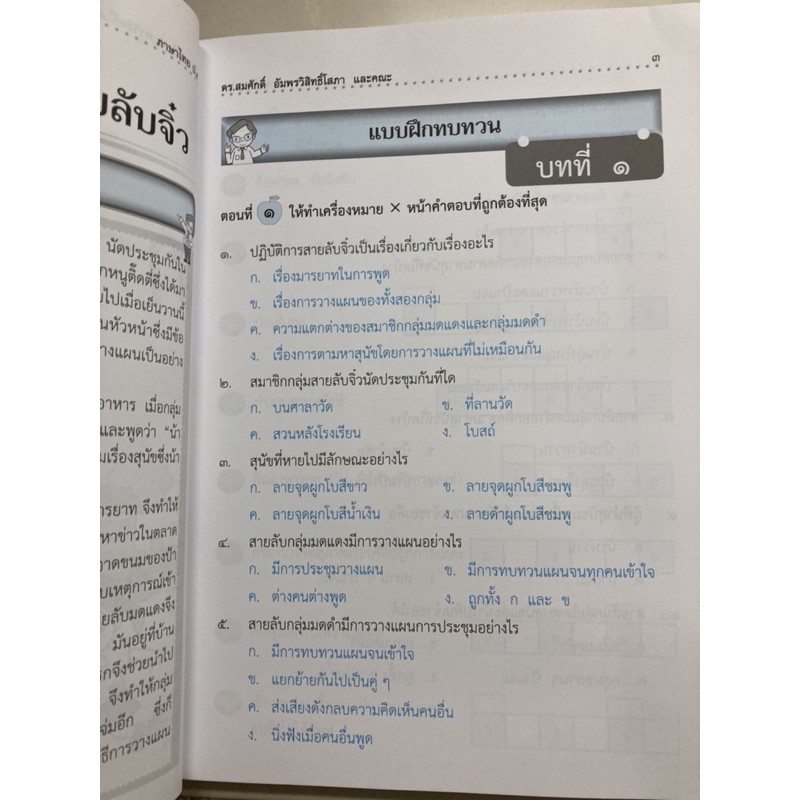 ภาษาไทย
ยลับจิ๋ว
นัดประชุมกันใน
กหนูติ๊ดตี่ซึ่งได้มา
ยไปเมื่อเย็นวานนี้
นหัวหน้าซึ่งมีข้อ
วางแผนเป็นอย่าง
อาหาร เมื่อกลุ่ม
และพูดว่า “น้า
มเรื่องสุนัขซึ่งน้า
ารยาท จึงทำให้
หาข่าวในตลาด
าดขนมของป้า
บเหตุการณ์เข้า
ายลับมดแดงจึง
มันอยู่ที่บ้าน
รกจึงช่วยนำไป
จึงทำให้กลุ่ม
จ่มอีก ซึ่งก็
ธีการวางแผน
ดร.สมศักดิ์ อัมพรวิสิทธิ์โสภา และคณะ ๓
แบบฝึกทบทวน
บทที่ ๑
ตอนที่ ๑ ให้ทำเครื่องหมาย × หน้าคำตอบที่ถูกต้องที่สุด
๑. ปฏิบัติการสายลับจิ๋วเป็นเรื่องเกี่ยวกับเรื่องอะไร
ก. เรื่องมารยาทในการพูด
ข. เรื่องการวางแผนของทั้งสองกลุ่ม
ค. ความแตกต่างของสมาชิกกลุ่มมดแดงและกลุ่มมดดำ
ง. เรื่องการตามหาสุนัขโดยการวางแผนที่ไม่เหมือนกัน
๒. สมาชิกกลุ่มสายลับจิ๋วนัดประชุมกันที่ใด
ก. บนศาลาวัด ข. ที่ลานวัด
ค. สวนหลังโรงเรียน ง. โบสถ์
๓. สุนัขที่หายไปมีลักษณะอย่างไร
ก. ลายจุดผูกโบสีขาว ข. ลายจุดผูกโบสีชมพู
ค. ลายจุดผูกโบสีน้ำเงิน ง. ลายดำผูกโบสีชมพู
๔. สายลับกลุ่มมดแดงมีการวางแผนอย่างไร
ก. มีการประชุมวางแผน ข. มีการทบทวนแผนจนทุกคนเข้าใจ
ค. ต่างคนต่างพูด ง. ถูกทั้ง ก และ ข
๕. สายลับกลุ่มมดดำมีการวางแผนการประชุมอย่างไร
ก. มีการทบทวนแผนจนเข้าใจ
ข. แยกย้ายกันไปเป็นคู่ ๆ
ค. ส่งเสียงดังกลบความคิดเห็นคนอื่น
ง. นิ่งฟังเมื่อคนอื่นพูด